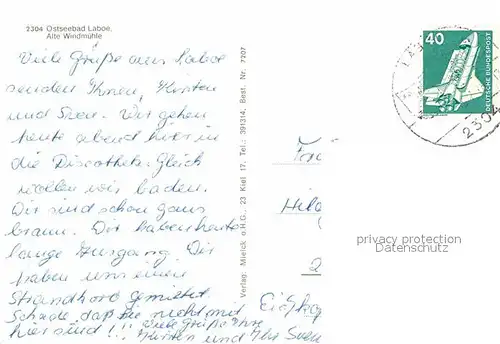 2304 Ostseebad Laboe,
Alte Windmühle
Viele Grüße aus Laboe
senden Ihnen, Kirsten
und Sven. Wir gehen
heute abend hier in
die Discothek. Gleich
wollen wir baden.
Wir sind schon ganz
braun. Wir haben heute
lange Ausgang. Wir
haben uns einen
Strandkorb gemietet.
Schade, daß Sie nicht mit
hier sind!!! Viele Grüße Ihre
Kirsten und Ihr Sven
Verlag Mielck o.H.G., 23 Kiel 17, Tel.: 391314, Best. Nr. 7207
40
DEUTSCHE BUNDESPOST
2304
privacy protection
DELCAMPE.NET